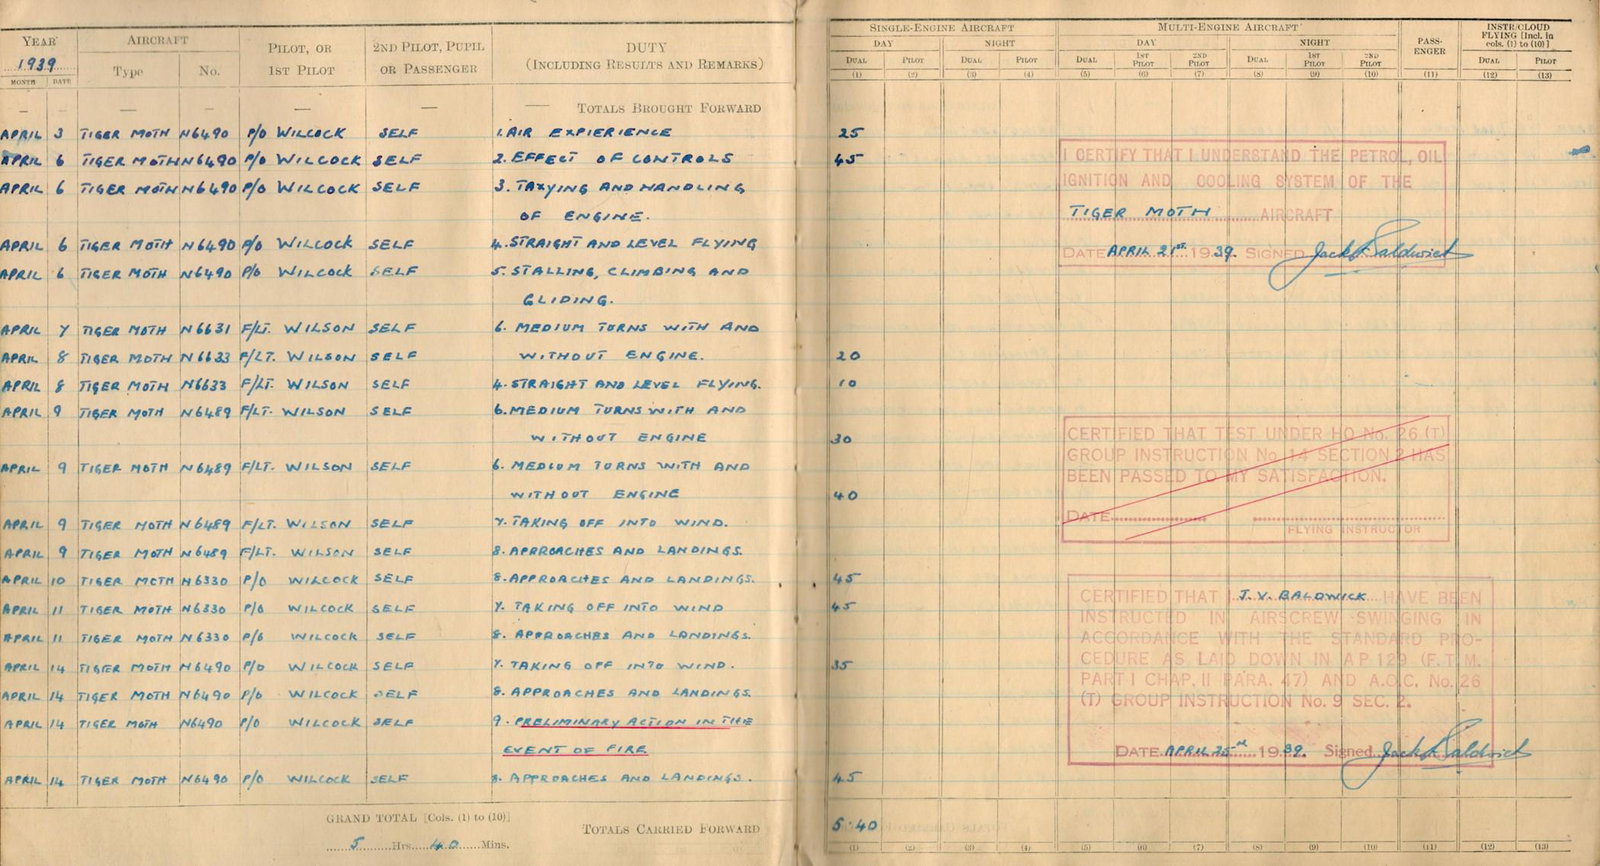 YEAR AIRCRAFT PILOT, OR 2ND PILOT, PUPIL DUTY
1939 Type No. 1ST PILOT OR PASSENGER (INCLUDING RESULTS AND REMARKS)
MONTH DATE
— — — — — — — TOTALS BROUGHT FORWARD
APRIL 3 TIGER MOTH N6490 P/O WILCOCK SELF 1. AIR EXPIERIENCE
APRIL 6 TIGER MOTH N6490 P/O WILCOCK SELF 2. EFFECT OF CONTROLS
APRIL 6 TIGER MOTH N6490 P/O WILCOCK SELF 3. TAXYING AND HANDLING
OF ENGINE.
APRIL 6 TIGER MOTH N6490 P/O WILCOCK SELF 4. STRAIGHT AND LEVEL FLYING
APRIL 6 TIGER MOTH N6490 P/O WILCOCK SELF 5. STALLING, CLIMBING AND
GLIDING.
APRIL 7 TIGER MOTH N6631 F/LT. WILSON SELF 6. MEDIUM TURNS WITH AND
APRIL 8 TIGER MOTH N6633 F/LT. WILSON SELF WITHOUT ENGINE.
APRIL 8 TIGER MOTH N6633 F/LT. WILSON SELF 4. STRAIGHT AND LEVEL FLYING.
APRIL 9 TIGER MOTH N6489 F/LT. WILSON SELF 6. MEDIUM TURNS WITH AND
WITHOUT ENGINE
APRIL 9 TIGER MOTH N6489 F/LT. WILSON SELF 6. MEDIUM TURNS WITH AND
WITHOUT ENGINE
APRIL 9 TIGER MOTH N6489 F/LT. WILSON SELF 7. TAKING OFF INTO WIND.
APRIL 9 TIGER MOTH N6489 F/LT. WILSON SELF 8. APPROACHES AND LANDINGS.
APRIL 10 TIGER MOTH N6330 P/O WILCOCK SELF 8. APPROACHES AND LANDINGS.
APRIL 11 TIGER MOTH N6330 P/O WILCOCK SELF 7. TAKING OFF INTO WIND
APRIL 11 TIGER MOTH N6330 P/O WILCOCK SELF 8. APPROACHES AND LANDINGS.
APRIL 14 TIGER MOTH N6490 P/O WILCOCK SELF 7. TAKING OFF INTO WIND.
APRIL 14 TIGER MOTH N6490 P/O WILCOCK SELF 8. APPROACHES AND LANDINGS.
APRIL 14 TIGER MOTH N6490 P/O WILCOCK SELF 9. PRELIMINARY ACTION IN THE
EVENT OF FIRE
APRIL 14 TIGER MOTH N6490 P/O WILCOCK SELF 8. APPROACHES AND LANDINGS.
GRAND TOTAL [Cols. (1) to (10)]
5 Hrs. 40 Mins.
TOTALS CARRIED FORWARD
SINGLE-ENGINE AIRCRAFT MULTI-ENGINE AIRCRAFT PASS-ENGER INSTR/CLOUD FLYING [Incl. in cols. (1) to (10)]
DAY NIGHT DAY NIGHT
DUAL PILOT DUAL PILOT DUAL 1ST PILOT 2ND PILOT DUAL 1ST PILOT 2ND PILOT DUAL PILOT
(1) (2) (3) (4) (5) (6) (7) (8) (9) (10) (11) (12) (13)
25
45
20
10
30
40
45
45
35
45
5.40
(1) (2) (3) (4) (5) (6) (7) (8) (9) (10) (11) (12) (13)
I CERTIFY THAT I UNDERSTAND THE PETROL, OIL
IGNITION AND COOLING SYSTEM OF THE
TIGER MOTH AIRCRAFT
DATE APRIL 21st. 1939. SIGNED Jack Baldwick
CERTIFIED THAT TEST UNDER HQ No. 26 (T)
GROUP INSTRUCTION No. 14 SECTION 2 HAS
BEEN PASSED TO MY SATISFACTION.
DATE
FLYING INSTRUCTOR
CERTIFIED THAT I J.V. BALDWICK HAVE BEEN
INSTRUCTED IN AIRSCREW SWINGING IN
ACCORDANCE WITH THE STANDARD PRO-
CEDURE AS LAID DOWN IN A P 129 (F.T.M.
PART I CHAP. II PARA. 47) AND A.O.C. No. 26
(T) GROUP INSTRUCTION No. 9 SEC. 2.
DATE APRIL 25th 1939. Signed Jack Baldwick